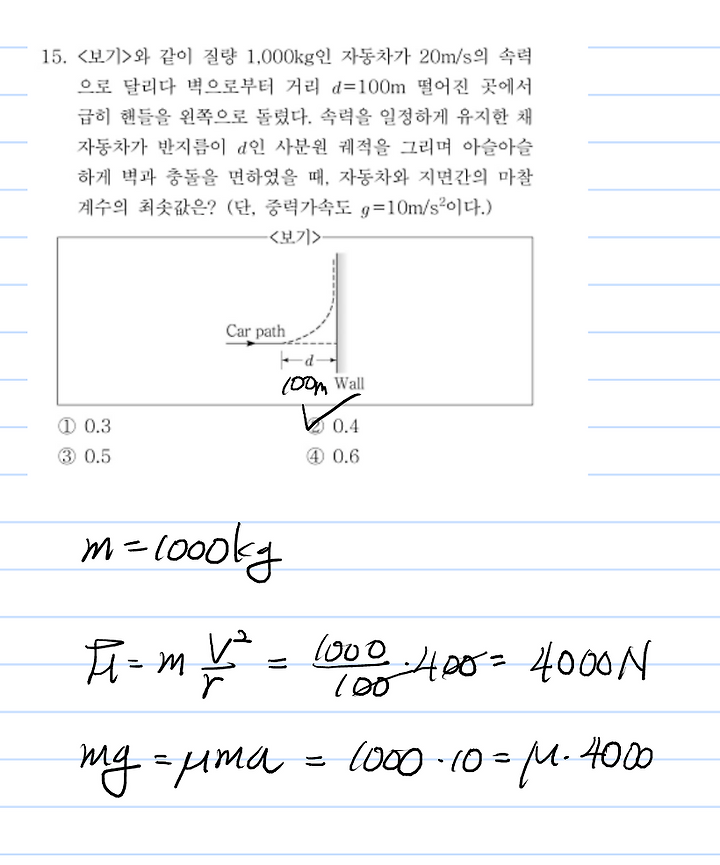 15. <보기>와 같이 질량 1,000kg인 자동차가 20m/s의 속력
으로 달리다 벽으로부터 거리 d=100m 떨어진 곳에서
급히 핸들을 왼쪽으로 돌렸다. 속력을 일정하게 유지한 채
자동차가 반지름이 d인 사분원 궤적을 그리며 아슬아슬
하게 벽과 충돌을 면하였을 때, 자동차와 지면간의 마찰
계수의 최솟값은? (단, 중력가속도 g=10m/s²이다.)
<보기>
Car path
d
100m Wall
① 0.3
② 0.4
③ 0.5
④ 0.6
m=1000kg
Fμ = m V²/r = 1000/100 · 400 = 4000N
mg = μma = 1000 · 10 = μ · 4000